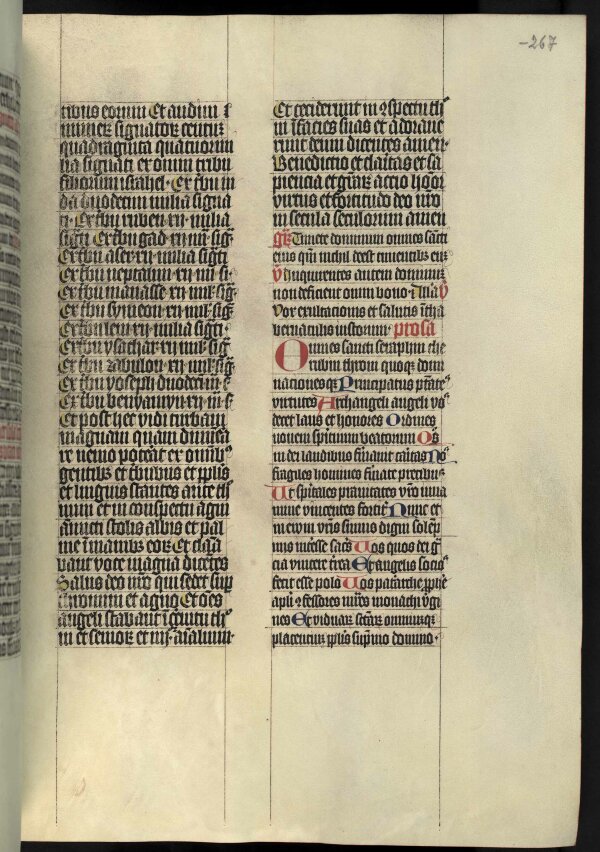 -267
tibus eorum Et audiui i
numerū signatorū centū
quadraginta quatuor mi
lia signati ex omni tribu
filiorum israhel · Ex tbu iu
da duodecim milia signa
ti · Ex tbu ruben · xij · milia
sigti Ex tbu gad · xij · mi sigti
Ex tbu aser · xij · milia sigti
Ex tbu neptalim · xij · mi · si ·
Ex tbu manasse · xij · mil · sig
Ex tbu symeon · xij · mil · sig
Ex tbu leui · xij · milia sigti ·
Ex tbu ysachar · xij · mil · sig
Ex tbu zabulon · xij · mil · sig
Ex tbu yoseph duodeci · m · s
Ex tbu beniamyn · xij · m · s
Et post hec vidi turbam
magnam quam dinume
re nemo poterat ex omibꝫ
gentibus et tbubus et pplis
et linguis stantes ante th
num et in conspectu agni
amicti stolis albis et pal
me i manibꝫ eorū Et clama
bant voce magna dicetes
Salus deo nro qui sedet sup
thronum et agno Et oēs
angeli stabant i cspectu th
ni et seniorū et iiij · aialium ·
Et ceciderunt in ꝯspectu th
ni i facies suas et adoraue
runt deum dicentes amen ·
Benedictio et claritas et sa
piencia et grarū actio honor
virtus et fortitudo deo nro
in secula seculorum amen
Gr̄ Timete dominum omnes sancti
eius qm nichil deest timentibꝫ eum
V Inquirentes autem dominum
non deficient omni bono · Alla V
Vox exultacionis et salutis i tha
bernaculis iustorum · Prosa
Omnes sancti seraphin che
rubin throni quoqꝫ domi
nacionesqꝫ Principatus ptates
virtutes Archangeli angeli vos
decet laus et honores Ordines
nouem spirituum beatorum Quos
in dei laudibus firmauit caritas Nos
fragiles homines firmate precibus
Ut spirtales prauitates vestro iuua
mine vincentes fortiter Nunc et
in euum vestris simus digni solep
niis interesse sacris Vos quos dei gra
cia vincere terrea Et angelis socios
fecit esse polo Vos patriarche pphe
apli ꝯfessores mres monachi virgi
nes Et viduarum sctarum omniumqꝫ
placentium pplus supmo domino ·